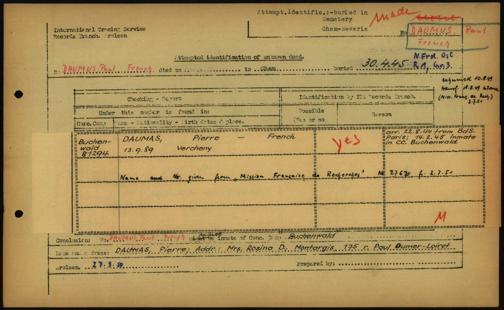 Attempt.Identific.,re-buried in
Cemetery
Cham-Bavaria
made
DAUMAS, Paul
French
International Tracing Service
Records Branch, Arolsen
N.Frd. Dsc
Attempted identification of unknown dead.
No. DAUMAS Paul French died on to Cham buried 30.4.45
Checking - Report
Identification by the Records Branch.
Under this number is found in:
Conc.Camp Name - Nationality - birth date & place.
Possible
(Yes or no)
Reason
Buchenwald
DAUMAS, Pierre - French
13.9.89 Vercheny
yes
arr. 22.8.44 from BdS.
Paris; 14.2.45 Inmate
in CC. Buchenwald
Name and Nr. given from "Mission Française de Recherches" Nr 27670 f. 2.7.50
M
Conclusion: DAUMAS Paul French Inmate of Conc. Camp Buchenwald
DAUMAS, Pierre, Addr: Mrs. Rosina D. Montargis, 175 r. Paul Dumer-Loiret
Arolsen, 27.9.50
Prepared by: